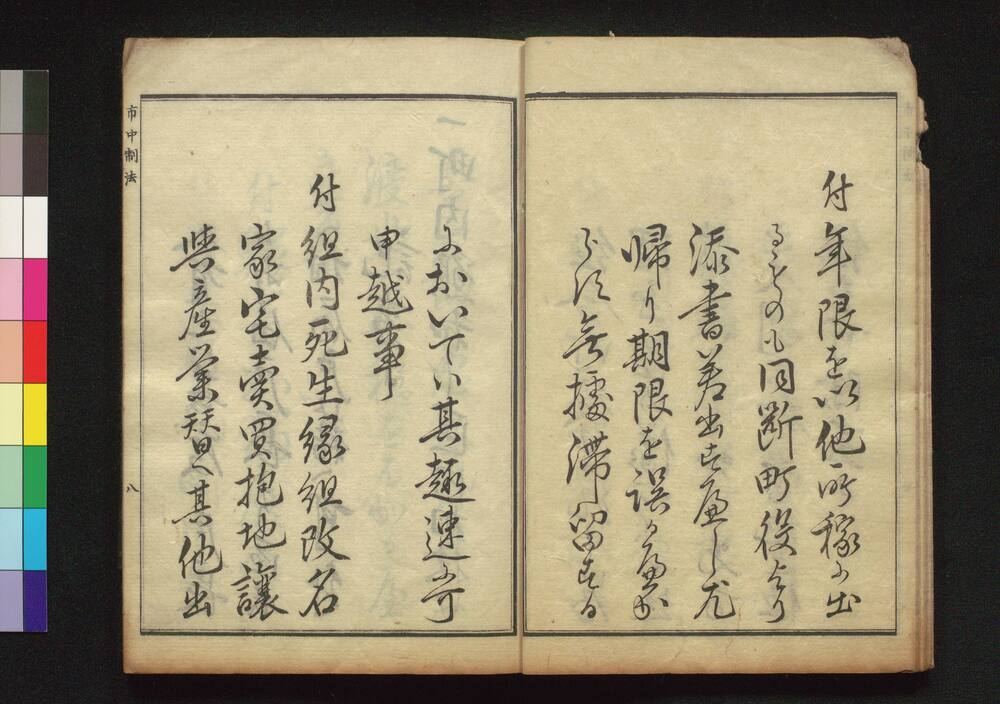 付年限を以他所稼に出
るものも同断町役より
添書差出すへし尤
帰り期限を誤るへか
らす無據滞留する
においてハ其趣速ニ可
申越事
付組内死生縁組改名
家宅賣買抱地讓
與産業替へ其他出
市中制法
八